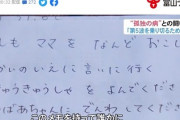 "孤独の病"との闘
「第5波を乗り切るため
富山テ
も ママを なんど おこし
かいのいえに 言いに 行く
ゅうきゅうしゃを よんでくださ
ばあちゃんに でんわしてくださ
このメモを持って誰かに